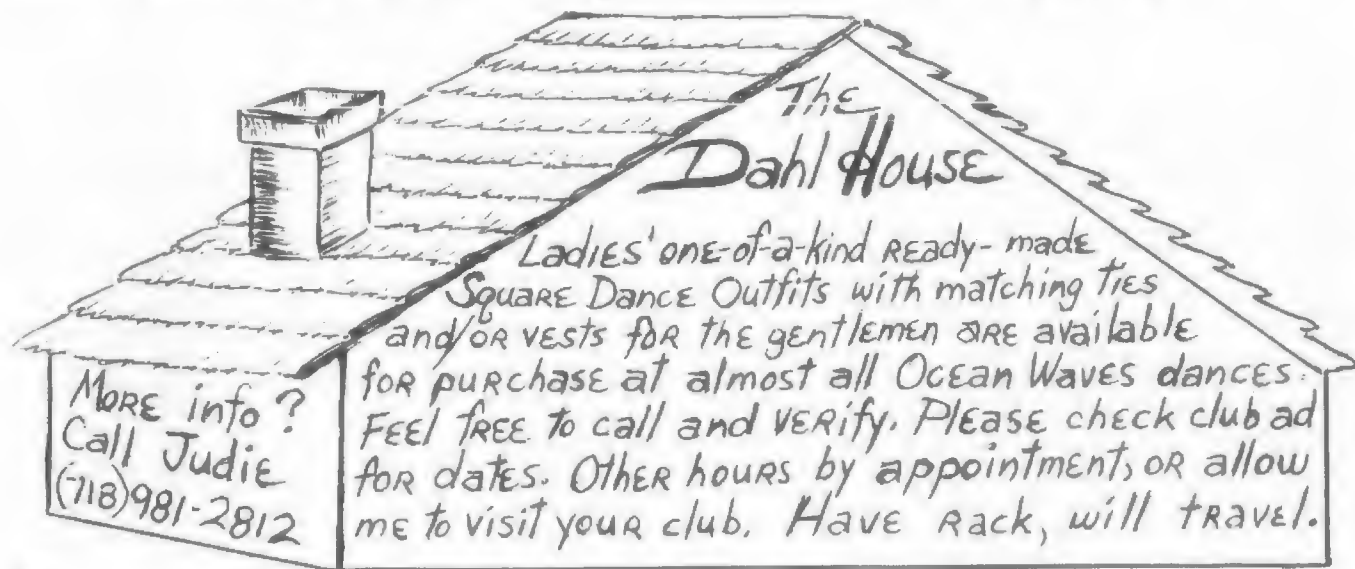 The
Dahl House
Ladies' one-of-a-kind Ready-made
Square Dance Outfits with matching ties
and/or vests for the gentlemen are available
for purchase at almost all Ocean Waves dances.
Feel free to call and verify. Please check club ad
for dates. Other hours by appointment, or allow
me to visit your club. Have rack, will travel.
More info?
Call Judie
(718)981-2812